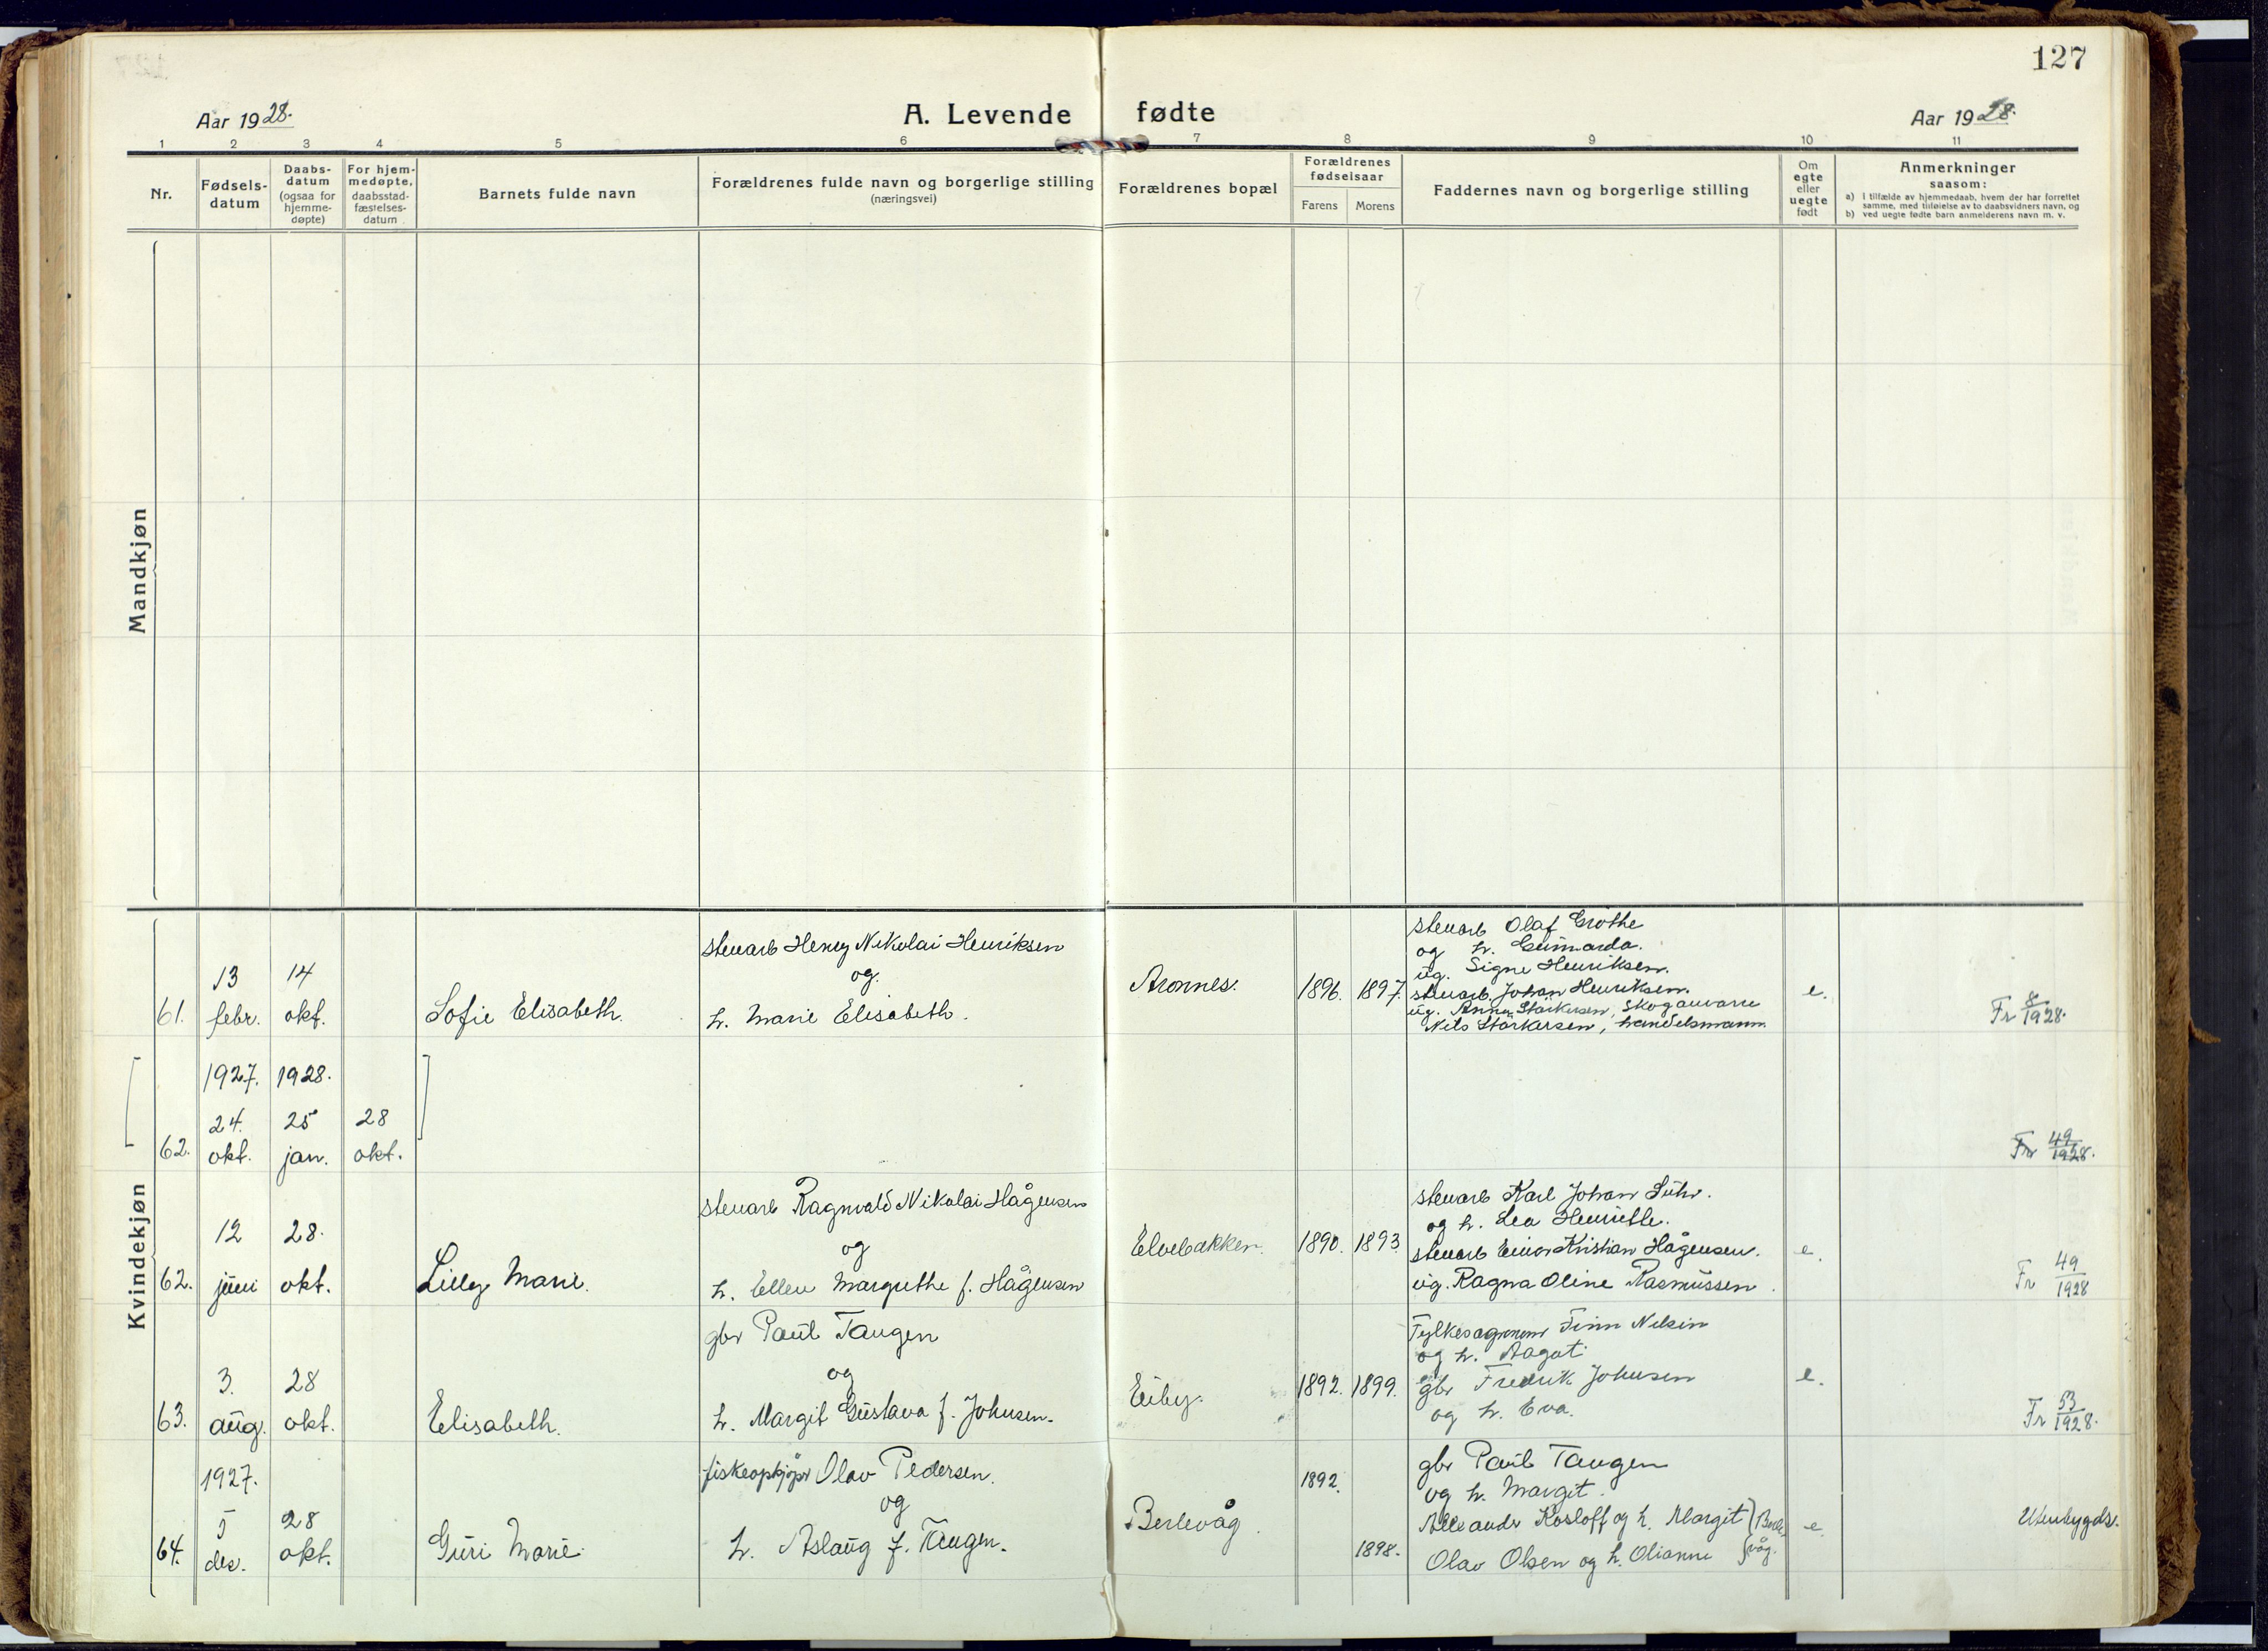 127
Aar 1928.
A. Levende fødte
Aar 1928.
1 2 3 4 5 6 7 8 9 10 11
Nr.
Fødsels-
datum
Daabs-
datum
(ogsaa for
hjemme-
døpte)
For hjem-
medøpte,
daabsstad-
fæstelses-
datum
Barnets fulde navn
Forældrenes fulde navn og borgerlige stilling
(næringsvei)
Forældrenes bopæl
Forældrenes
fødselsaar
Farens Morens
Faddernes navn og borgerlige stilling
Om
egte
eller
uegte
født
Anmerkninger
saasom:
a) i tilfælde av hjemmedaab, hvem der har forrettet
samme, med tilføielse av to daabsvidners navn, og
b) ved uegte fødte barn anmelderens navn m. v.
Mandkjøn
Kvindekjøn
61.
13
febr.
14
okt.
Sofie Elisabeth.
stenarb Henry Nikolai Henriksen
og
h. Marie Elisabeth.
Aronnes.
1896. 1897.
stenarb Olaf Grothe
og h. Gunnarda.
ug. Signe Henriksen.
stenarb. Johan Henriksen.
ug. Anna Stärkersen, Skoganvarre
Nils Stärkersen, handelsmann
e.
Fr 8/1928.
62.
1927.
24.
okt.
1928.
25
jan.
28
okt.
Fr 49/1928.
62.
12
juni
28.
okt.
Lilly Marie.
stenarb Ragnvald Nikolai Hågensen
og
h. Ellen Margrethe f. Hågensen
Elvebakken.
1890. 1893.
stenarb Karl Johan Suhr.
og h. Lea Henriette.
stenarb Einar Kristian Hågensen.
ug. Ragna Oline Rasmussen.
e.
Fr 49/1928
63.
3.
aug.
28
okt.
Elisabeth.
gbr Paul Tangen
og
h. Margit Gustava f. Johnsen.
Eiby.
1892. 1899.
Fylkesagronom Finn Nilsen
og h. Aagot
gbr Fredrik Johnsen
og h. Eva.
e.
Fr 53/1928.
64.
1927.
5
des.
28
okt.
Guri Marie.
fiskeopkjøper Olav Pedersen.
og
h. Aslaug f. Tangen.
Berlevåg.
1892.
1898.
gbr Paul Tangen
og h. Margit.
Alexander Kosloff og h. Margit } Berle-
Olav Olsen og h. Olianne } våg.
e.
Utenbygds.